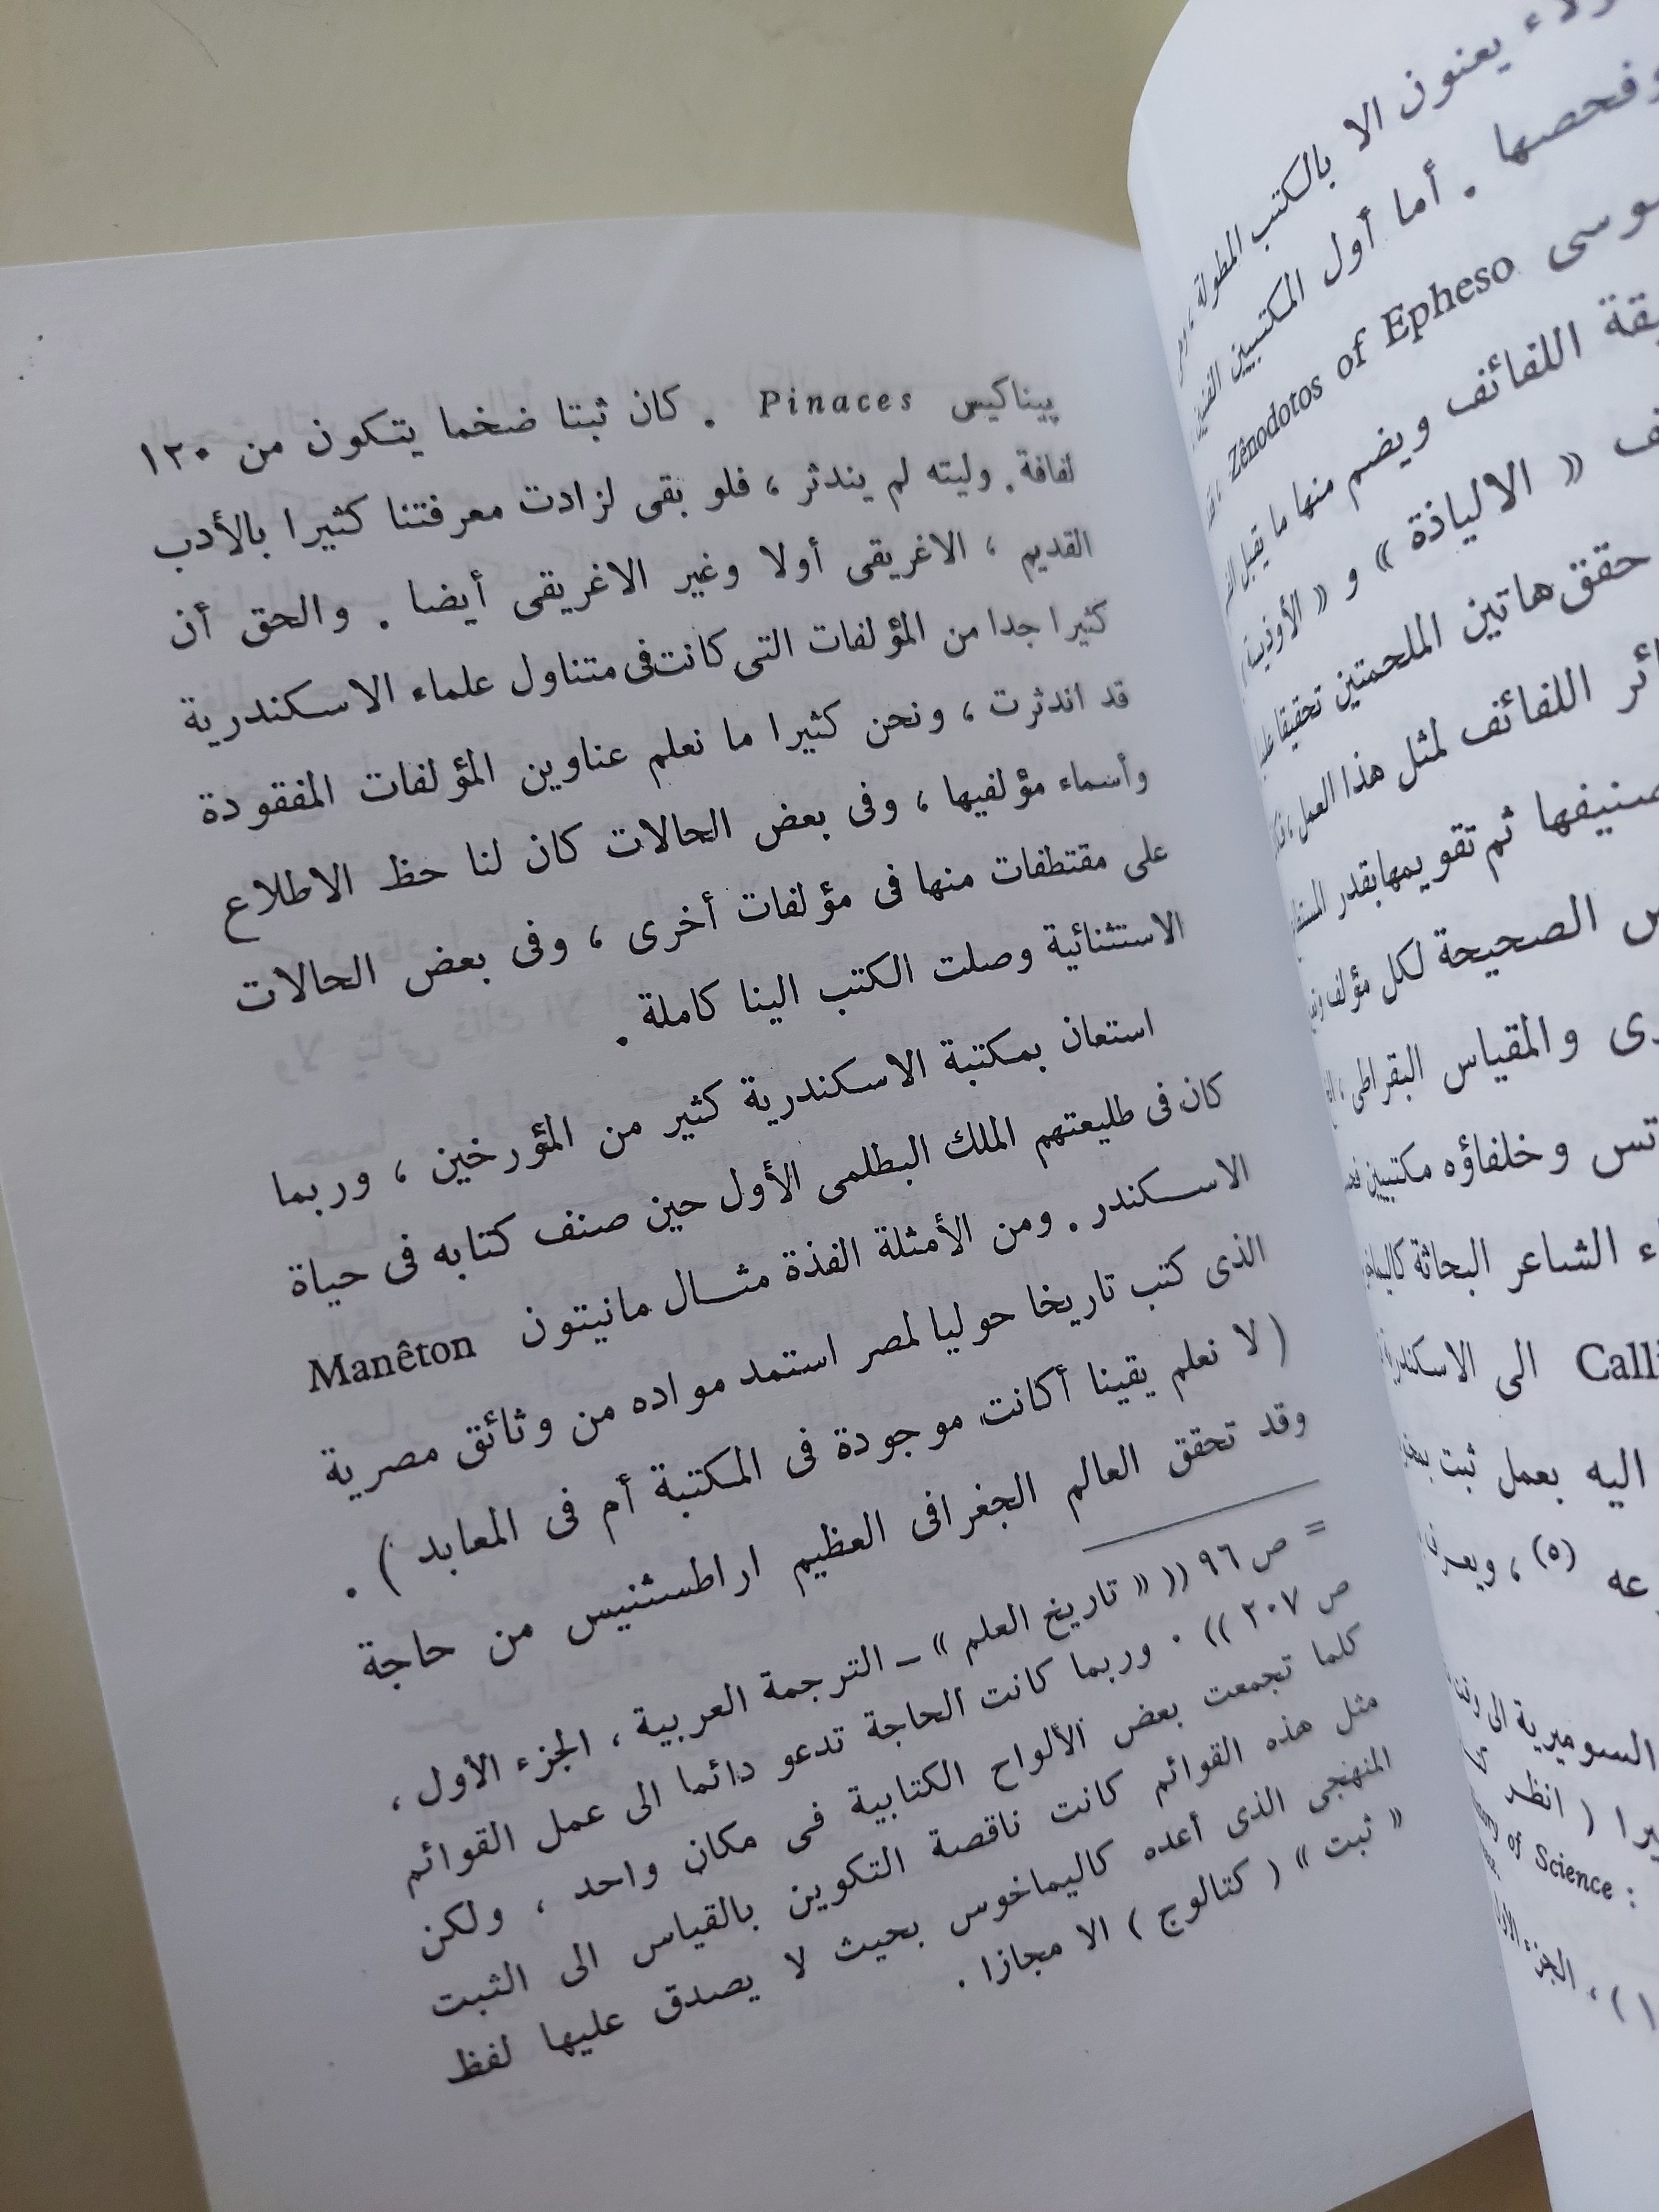 ؤلاء يعنون الا بالكتب المطولة ،
وفحصها . أما أول المكتبيين
وسى Zênodotos of Epheso ،
اللفائف ويضم منها ما يقبل
« الالياذة » و « الأوذيسة »
حقق هاتين الملحمتين تحقيقا
اللفائف لمثل هذا العمل ،
ثم تقويمها بقدر
الصحيحة لكل مؤلف
والمقياس البقراطى ،
وخلفاؤه مكتبيين
الشاعر البحاثة
Calli الى الاسكندرية
اليه بعمل ثبت
(٥) ، ويعرف
السوميرية الى
( انظر
of Science :
، الجزء
پيناكيس Pinaces . كان ثبتا ضخما يتكون من ١٢٠
لفافة . وليته لم يندثر ، فلو بقى لزادت معرفتنا كثيرا بالأدب
القديم ، الاغريقى أولا وغير الاغريقى أيضا . والحق أن
كثيرا جدا من المؤلفات التى كانت فى متناول علماء الاسكندرية
قد اندثرت ، ونحن كثيرا ما نعلم عناوين المؤلفات المفقودة
وأسماء مؤلفيها ، وفى بعض الحالات كان لنا حظ الاطلاع
على مقتطفات منها فى مؤلفات أخرى ، وفى بعض الحالات
الاستثنائية وصلت الكتب الينا كاملة .
استعان بمكتبة الاسكندرية كثير من المؤرخين ، وربما
كان فى طليعتهم الملك البطلمى الأول حين صنف كتابه فى حياة
الاسكندر . ومن الأمثلة الفذة مثال مانيتون Manêton
الذى كتب تاريخا حوليا لمصر استمد مواده من وثائق مصرية
( لا نعلم يقينا أكانت موجودة فى المكتبة أم فى المعابد ) .
وقد تحقق العالم الجغرافى العظيم اراطسثنيس من حاجة
= ص ٩٦ (( « تاريخ العلم » ــ الترجمة العربية ، الجزء الأول ،
ص ٢٠٧ )) . وربما كانت الحاجة تدعو دائما الى عمل القوائم
كلما تجمعت بعض الألواح الكتابية فى مكان واحد ، ولكن
مثل هذه القوائم كانت ناقصة التكوين بالقياس الى الثبت
المنهجى الذى أعده كاليماخوس بحيث لا يصدق عليها لفظ
« ثبت » ( كتالوج ) الا مجازا .